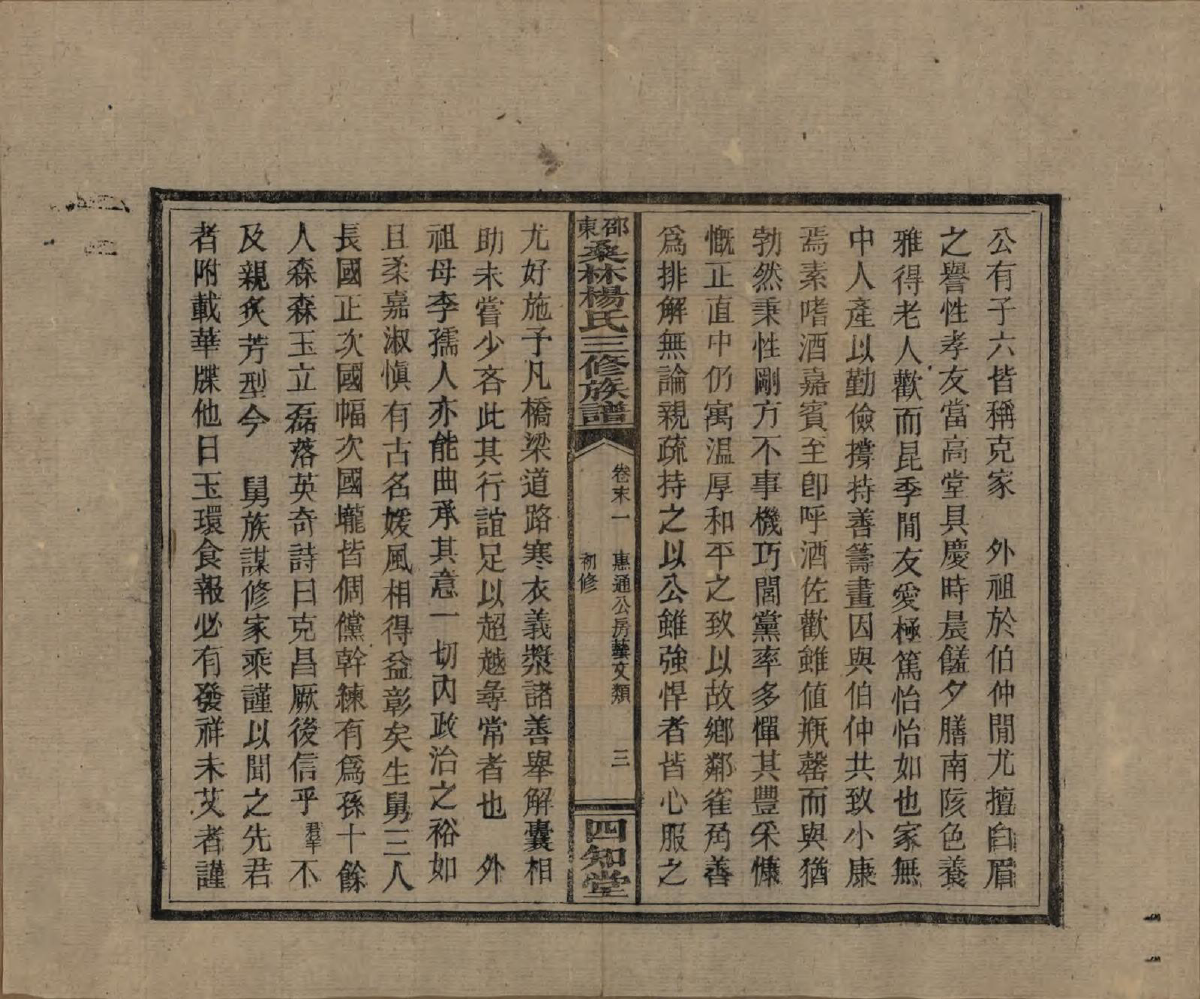 公有子六皆稱克家　外祖於伯仲閒尤擅白眉
之譽性孝友當高堂具慶時晨饈夕膳南陔色養
雅得老人歡而昆季閒友愛極篤怡怡如也家無
中人產以勤儉撐持善籌畫因與伯仲共致小康
焉素嗜酒嘉賓至卽呼酒佐歡雖值瓶罄而與猶
勃然秉性剛方不事機巧閭黨率多憚其豐采慷
慨正直中仍寓温厚和平之致以故鄉鄰雀角善
爲排解無論親疏持之以公雖強悍者皆心服之
邵東桑林楊氏三修族譜
卷末一　惠通公房藝文類　三
初修
四知堂
尤好施予凡橋梁道路寒衣義漿諸善舉解囊相
助未嘗少吝此其行誼足以超越尋常者也　外
祖母李孺人亦能曲承其意一切內政治之裕如
且柔嘉淑愼有古名媛風相得益彰矣生舅三人
長國正次國幅次國壠皆倜儻幹練有爲孫十餘
人森森玉立磊落英奇詩曰克昌厥後信乎君平不
及親炙芳型今　舅族謀修家乘謹以聞之先君
者附載華牒他日玉環食報必有發祥未艾者謹